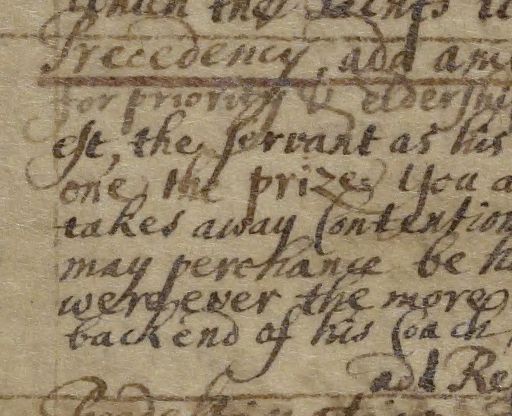 which the
Precedency, add am
for priority & eldership
est, the servant as his
one, the prize, You a
takes away Contention
may perchance be h
were ever the more
back end of his Coach
add Re